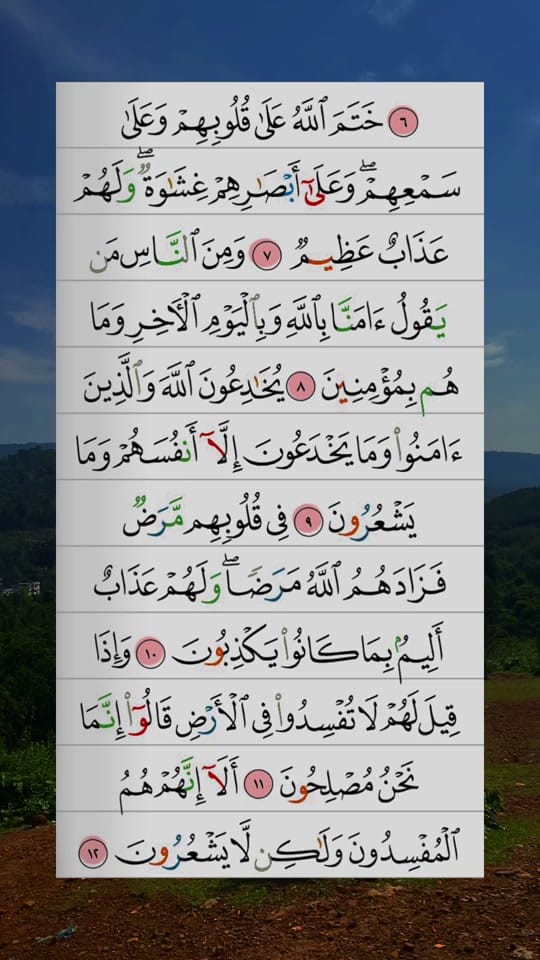 ٦ خَتَمَ ٱللَّهُ عَلَىٰ قُلُوبِهِمْ وَعَلَىٰ
سَمْعِهِمْۖ وَعَلَىٰٓ أَبْصَٰرِهِمْ غِشَٰوَةٌۖ وَلَهُمْ
عَذَابٌ عَظِيمٌ ٧ وَمِنَ ٱلنَّاسِ مَن
يَقُولُ ءَامَنَّا بِٱللَّهِ وَبِٱلْيَوْمِ ٱلْأَخِرِ وَمَا
هُم بِمُؤْمِنِينَ ٨ يُخَٰدِعُونَ ٱللَّهَ وَٱلَّذِينَ
ءَامَنُوا۟ وَمَا يَخْدَعُونَ إِلَّآ أَنفُسَهُمْ وَمَا
يَشْعُرُونَ ٩ فِى قُلُوبِهِم مَّرَضٌ
فَزَادَهُمُ ٱللَّهُ مَرَضًاۖ وَلَهُمْ عَذَابٌ
أَلِيمٌۢ بِمَا كَانُوا۟ يَكْذِبُونَ ١٠ وَإِذَا
قِيلَ لَهُمْ لَا تُفْسِدُوا۟ فِى ٱلْأَرْضِ قَالُوٓا۟ إِنَّمَا
نَحْنُ مُصْلِحُونَ ١١ أَلَآ إِنَّهُمْ هُمُ
ٱلْمُفْسِدُونَ وَلَٰكِن لَّا يَشْعُرُونَ ١٢